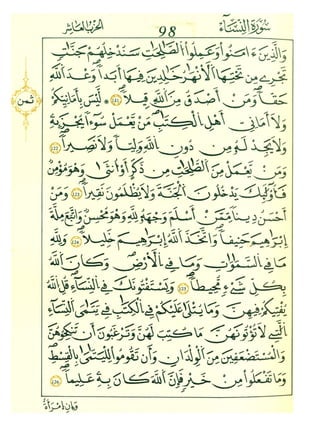 سُورَةُ النِّسَآءِ 98 الحِزْبُ العَاشِر
وَالذِينَ ءَامَنُواْ وَعَمِلُواْ الصَّٰلِحَٰتِ سَنُدْخِلُهُمْ جَنَّٰتٖ
تَجْرِے مِن تَحْتِهَا اَلَانْهَٰرُ خَٰلِدِينَ فِيهَآ أَبَداٗ وَعْدَ اَللَّهِ
حَقّاٗ وَمَنَ اَصْدَقُ مِنَ اَللَّهِ قِيلاٗ 121 لَّيْسَ بِأَمَانِيِّكُمْ
وَلَآ أَمَانِيِّ أَهْلِ اِلْكِتَٰبِ مَنْ يَّعْمَلْ سُوٓءاٗ يُجْزَ بِهِۦ
وَلَا يَجِدْ لَهُۥ مِن دُونِ اِللَّهِ وَلِيّاٗ وَلَا نَصِيراٗ 122
وَمَنْ يَّعْمَلْ مِنَ اَلصَّٰلِحَٰتِ مِن ذَكَرٍ اَوُ انث۪ىٰ وَهُوَ مُومِنٞ
فَأُوْلَٰٓئِكَ يَدْخُلُونَ اَلْجَنَّةَ وَلَا يُظْلَمُونَ نَقِيراٗ 123 وَمَنَ
اَحْسَنُ دِيناٗ مِّمَّنَ اَسْلَمَ وَجْهَهُۥ لِلهِ وَهُوَ مُحْسِنٞ وَاتَّبَعَ مِلَّةَ
إِبْرَٰهِيمَ حَنِيفاٗ وَاتَّخَذَ اَللَّهُ إِبْرَٰهِيمَ خَلِيلاٗ 124 وَلِلهِ
مَا فِے اِلسَّمَٰوَٰتِ وَمَا فِے اِلَارْضِ وَكَانَ اَللَّهُ
بِكُلِّ شَےْءٖ مُّحِيطاٗ 125 وَيَسْتَفْتُونَكَ فِے اِلنِّسَآءِ قُلِ اِللَّهُ
يُفْتِيكُمْ فِيهِنَّ وَمَا يُتْل۪ىٰ عَلَيْكُمْ فِے اِلْكِتَٰبِ فِے يَتَٰمَى اَلنِّسَآءِ
اِلتِے لَا تُوتُونَهُنَّ مَا كُتِبَ لَهُنَّ وَتَرْغَبُونَ أَن تَنكِحُوهُنَّ
وَالْمُسْتَضْعَفِينَ مِنَ اَلْوِلْدَٰنِ وَأَن تَقُومُواْ لِلْيَتَٰم۪ىٰ بِالْقِسْطِ
وَمَا تَفْعَلُواْ مِنْ خَيْرٖ فَإِنَّ اَللَّهَ كَانَ بِهِۦ عَلِيماٗ 126
وَإِنِ اِمْرَأَةٌ
ثمن